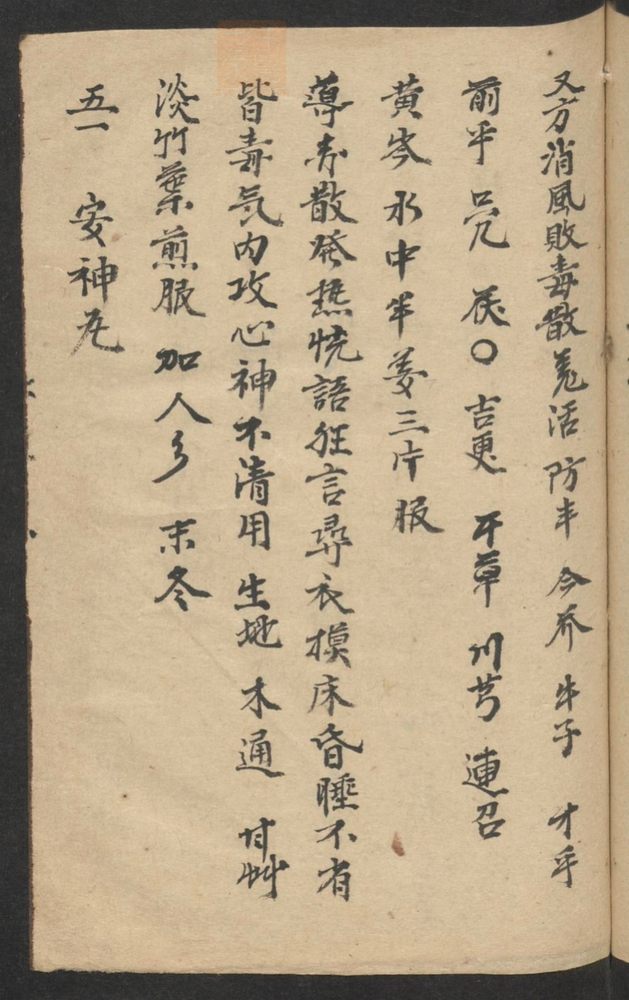 又方消風敗毒散羗活 防丰 今芥 牛子 才乎
前乎 只殻 茯〇 吉更 干草 川芎 連召
黃岑 水中半姜三片服
導赤散発热恍語狂言尋衣摸床昏睡不省
皆毒気内攻心神不清用 生地 木通 甘艸
淡竹葉煎服 加人彡 末冬
五一 安神丸